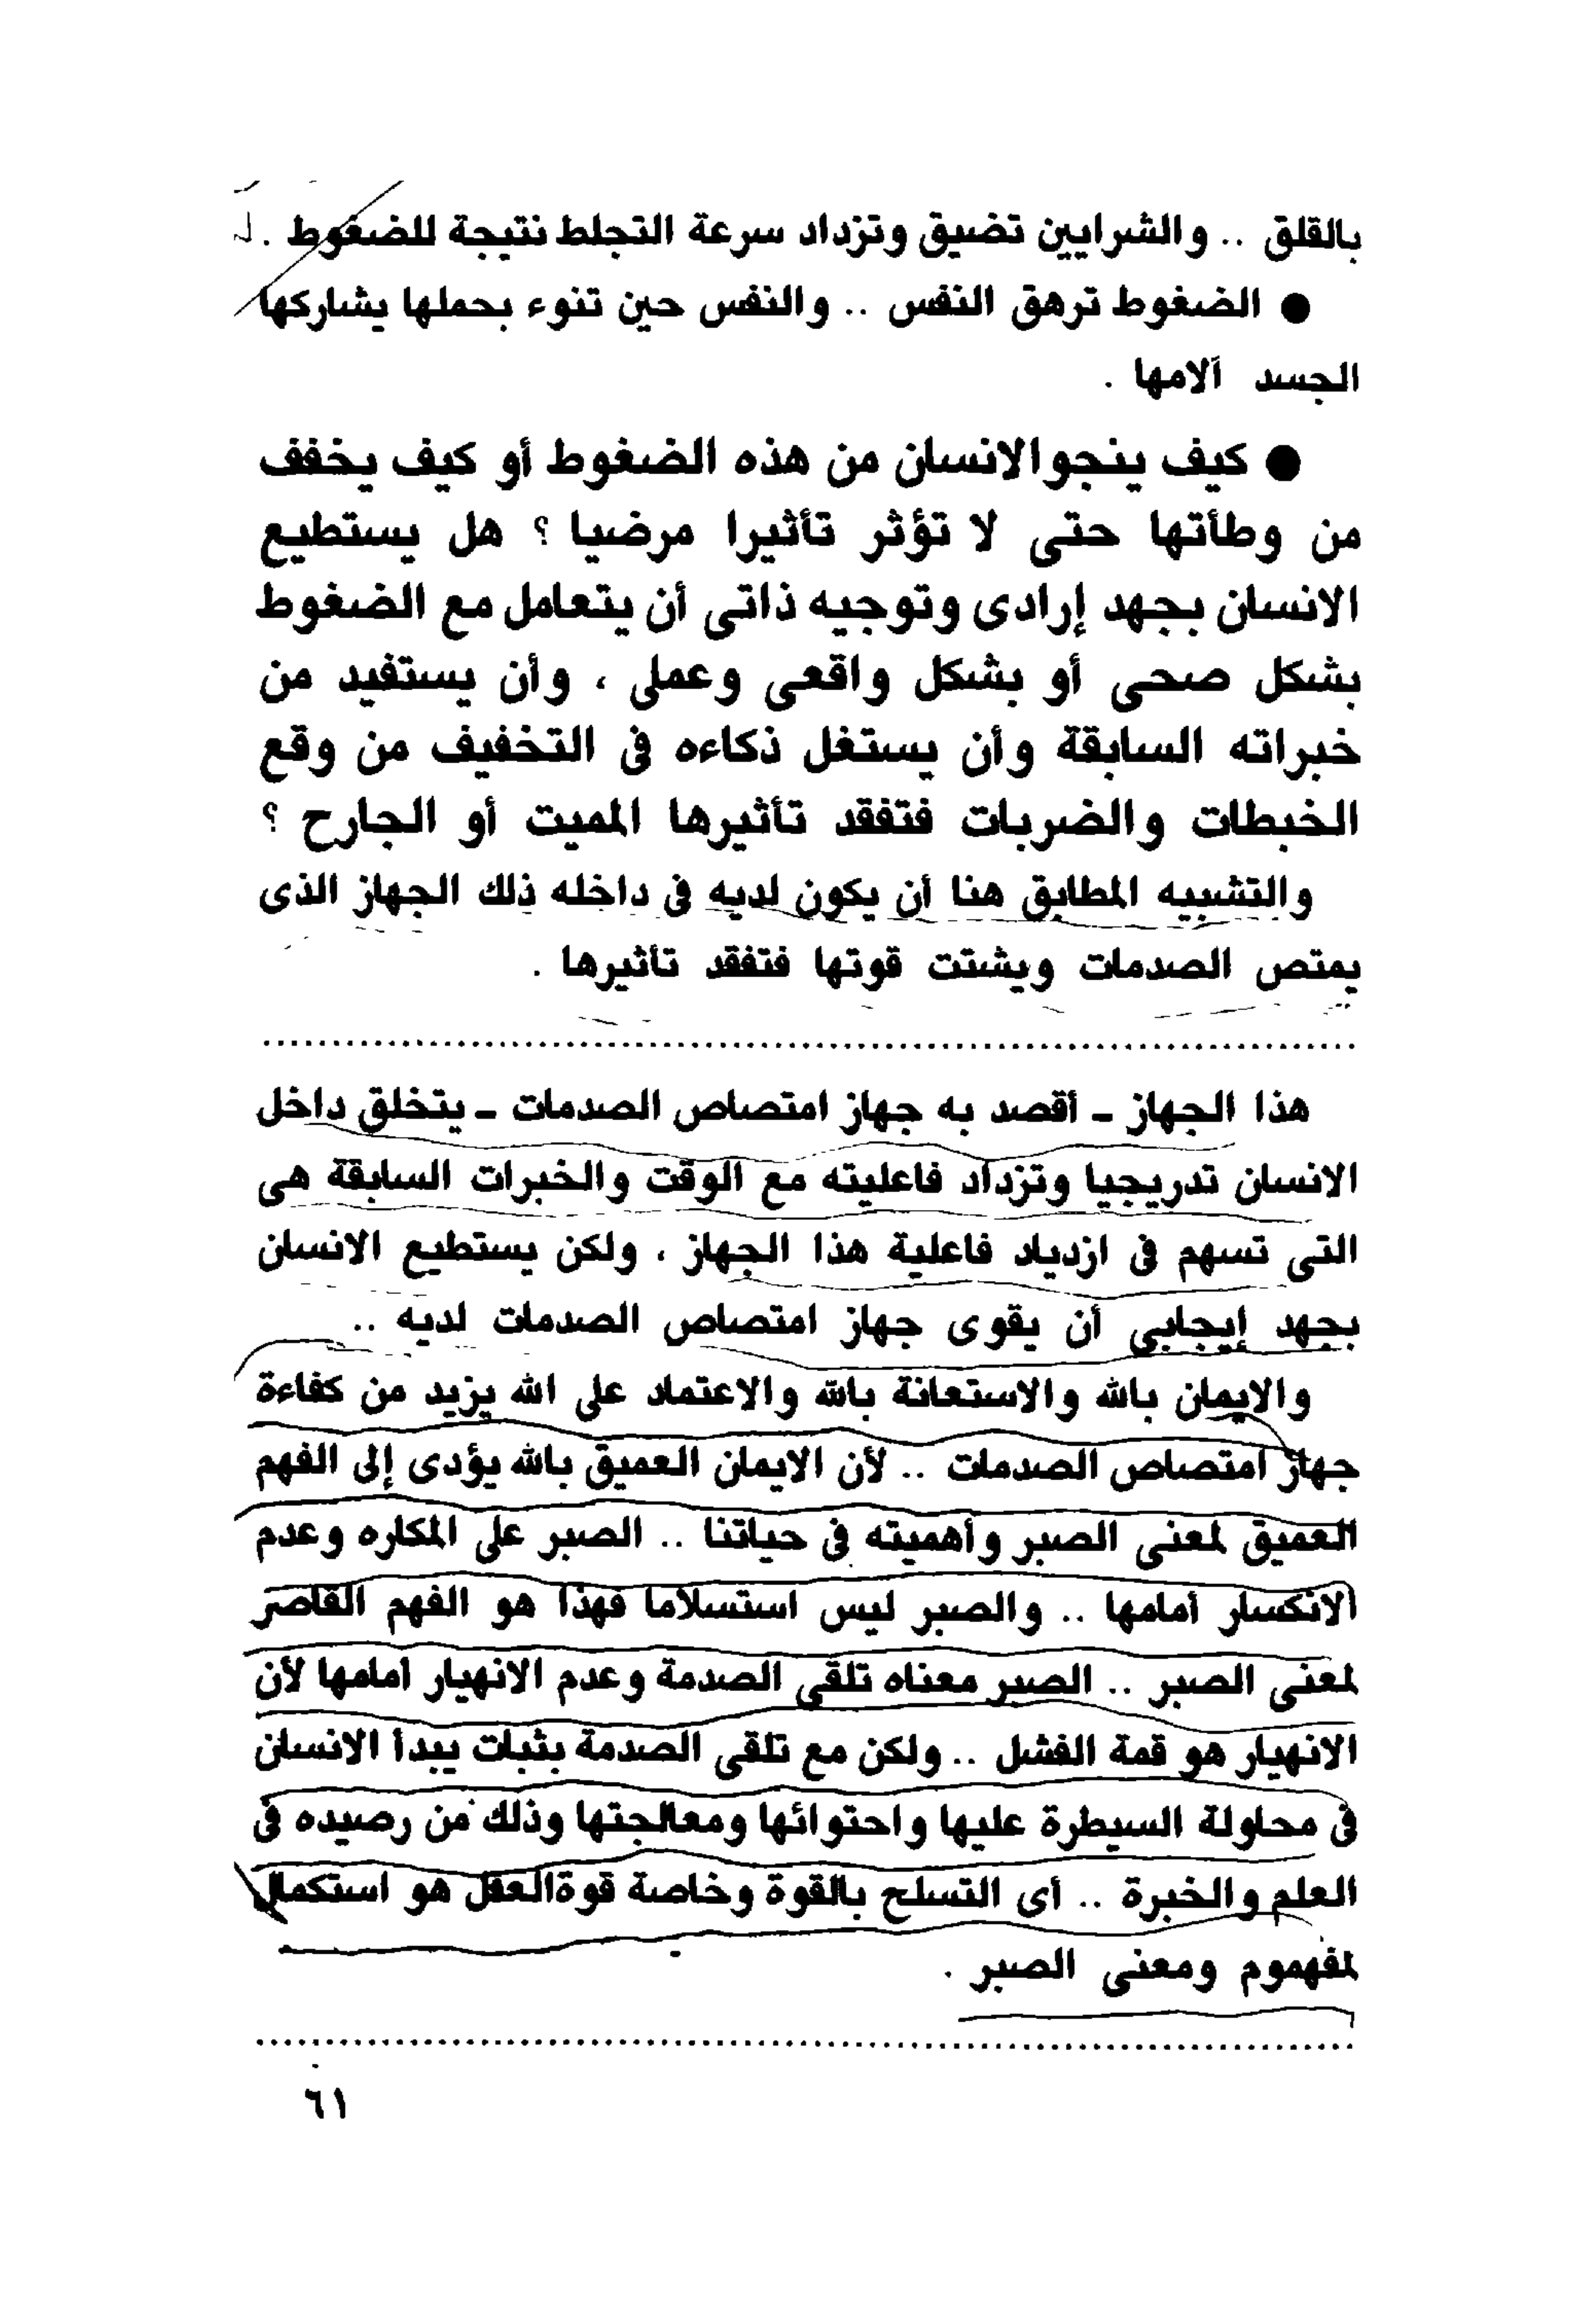 بالقلق .. والشرايين تضيق وتزداد سرعة التجلط نتيجة للضغوط .
● الضغوط ترهق النفس .. والنفس حين تنوء بحملها يشاركها
الجسد آلامها .
● كيف ينجو الانسان من هذه الضغوط أو كيف يخفف
من وطأتها حتى لا تؤثر تأثيرا مرضيا ؟ هل يستطيع
الانسان بجهد إرادى وتوجيه ذاتى أن يتعامل مع الضغوط
بشكل صحى أو بشكل واقعى وعملى ، وأن يستفيد من
خبراته السابقة وأن يستغل ذكاءه فى التخفيف من وقع
الخبطات والضربات فتفقد تأثيرها المميت أو الجارح ؟
والتشبيه المطابق هنا أن يكون لديه فى داخله ذلك الجهاز الذى
يمتص الصدمات ويشتت قوتها فتفقد تأثيرها .
هذا الجهاز ـ أقصد به جهاز امتصاص الصدمات ـ يتخلق داخل
الانسان تدريجيا وتزداد فاعليته مع الوقت والخبرات السابقة هى
التى تسهم فى ازدياد فاعلية هذا الجهاز ، ولكن يستطيع الانسان
بجهد إيجابي أن يقوى جهاز امتصاص الصدمات لديه ..
والايمان بالله والاستعانة بالله والاعتماد على الله يزيد من كفاءة
جهاز امتصاص الصدمات .. لأن الايمان العميق بالله يؤدى إلى الفهم
العميق لمعنى الصبر وأهميته فى حياتنا .. الصبر على المكاره وعدم
الانكسار أمامها .. والصبر ليس استسلاما فهذا هو الفهم القاصر
لمعنى الصبر .. الصبر معناه تلقى الصدمة وعدم الانهيار أمامها لأن
الانهيار هو قمة الفشل .. ولكن مع تلقى الصدمة بثبات يبدأ الانسان
فى محاولة السيطرة عليها واحتوائها ومعالجتها وذلك من رصيده فى
العلم والخبرة .. أى التسلح بالقوة وخاصة قوة العقل هو استكمال
لمفهموم ومعنى الصبر .
٦١